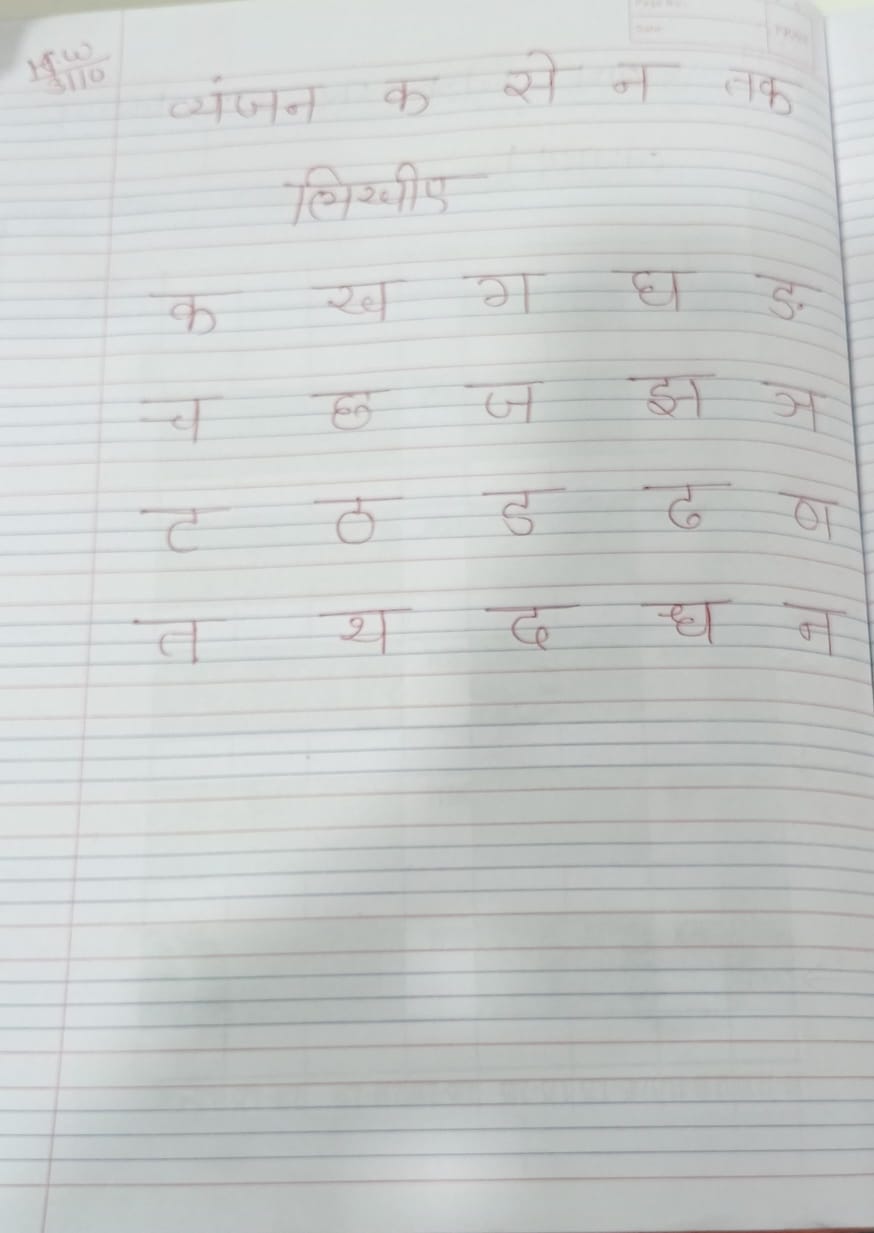 H.W
3110
व्यंजन क से न तक
लिखीए
क ख ग घ ङ
च छ ज झ ञ
ट ठ ड ढ ण
त थ द ध न